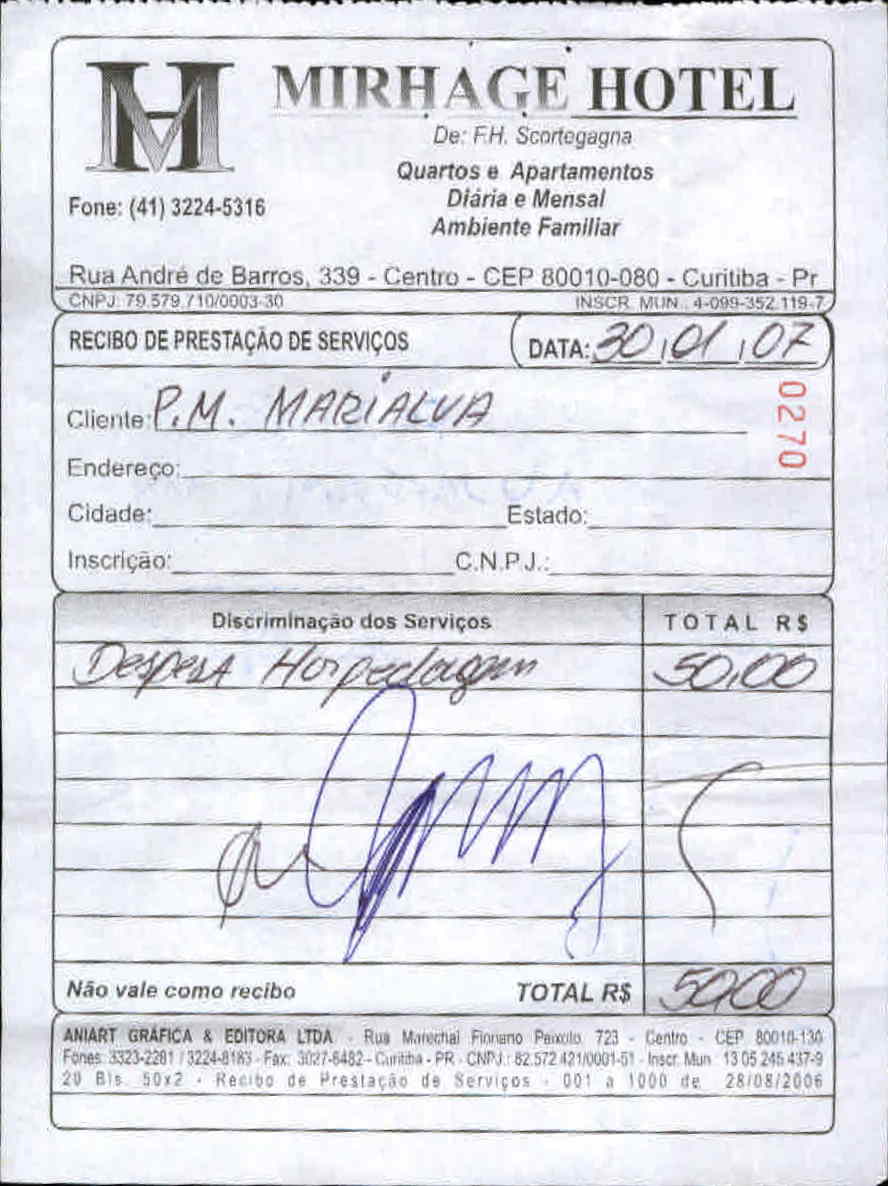 H
MIRHAGE HOTEL
De: F.H. Scortegagna
Quartos e Apartamentos
Diária e Mensal
Ambiente Familiar
Fone: (41) 3224-5316
Rua André de Barros, 339 - Centro - CEP 80010-080 - Curitiba - Pr
CNPJ: 79.579.710/0003-30 INSCR. MUN.: 4-099-352.119-7
RECIBO DE PRESTAÇÃO DE SERVIÇOS DATA: 30/01/07
0270
Cliente: P.M. MARIALVA
Endereço:
Cidade: Estado:
Inscrição: C.N.P.J.:
Discriminação dos Serviços TOTAL R$
Despesa Hospedagem 50,00
Não vale como recibo TOTAL R$ 50,00
ANIART GRÁFICA & EDITORA LTDA - Rua Marechal Floriano Peixoto, 723 - Centro - CEP 80010-130
Fones: 3323-2281 / 3224-8183 - Fax: 3027-6482 - Curitiba - PR - CNPJ.: 82.572.421/0001-51 - Inscr. Mun. 13 05 245 437-9
20 Bls. 50x2 - Recibo de Prestação de Serviços - 001 a 1000 de 28/08/2006